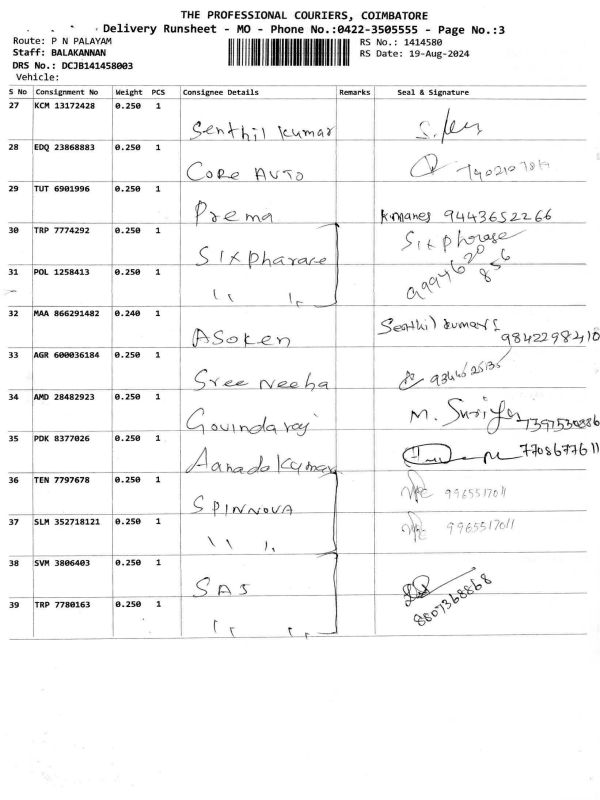 THE PROFESSIONAL COURIERS, COIMBATORE
Delivery Runsheet - MO - Phone No.:0422-3505555 - Page No.:3
Route: P N PALAYAM
RS No.: 1414580
Staff: BALAKANNAN
RS Date: 19-Aug-2024
DRS No.: DCJB141458003
Vehicle:
S No Consignment No Weight PCS Consignee Details Remarks Seal & Signature
27 KCM 13172428 0.250 1
Senthil kumar
28 EDQ 23868883 0.250 1
CORE AUTO
29 TUT 6901996 0.250 1
Prema 9443652266
30 TRP 7774292 0.250 1
Sixpharase Sixphrase
31 POL 1258413 0.250 1
" " 9994620 856
32 MAA 866291482 0.240 1
Senthil kumar
ASoken 9842298410
33 AGR 600036184 0.250 1
Sree Neeha
34 AMD 28482923 0.250 1
Govindaraj M.
35 PDK 8377026 0.250 1
Aanadakumar 7708677611
36 TEN 7797678 0.250 1
SPINNOVA 9965517011
37 SLM 352718121 0.250 1
" " 9965517011
38 SVM 3806403 0.250 1
SAS
39 TRP 7780163 0.250 1
8807368868
" "